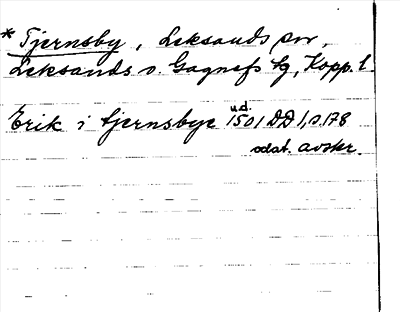 * Tjernsby, Leksands snr,
Leksands o. Gagnefs tg, Kopp. l.
Erik i tjernsbye u.d. 1501 DD 1, s. 178
odat. avskr.